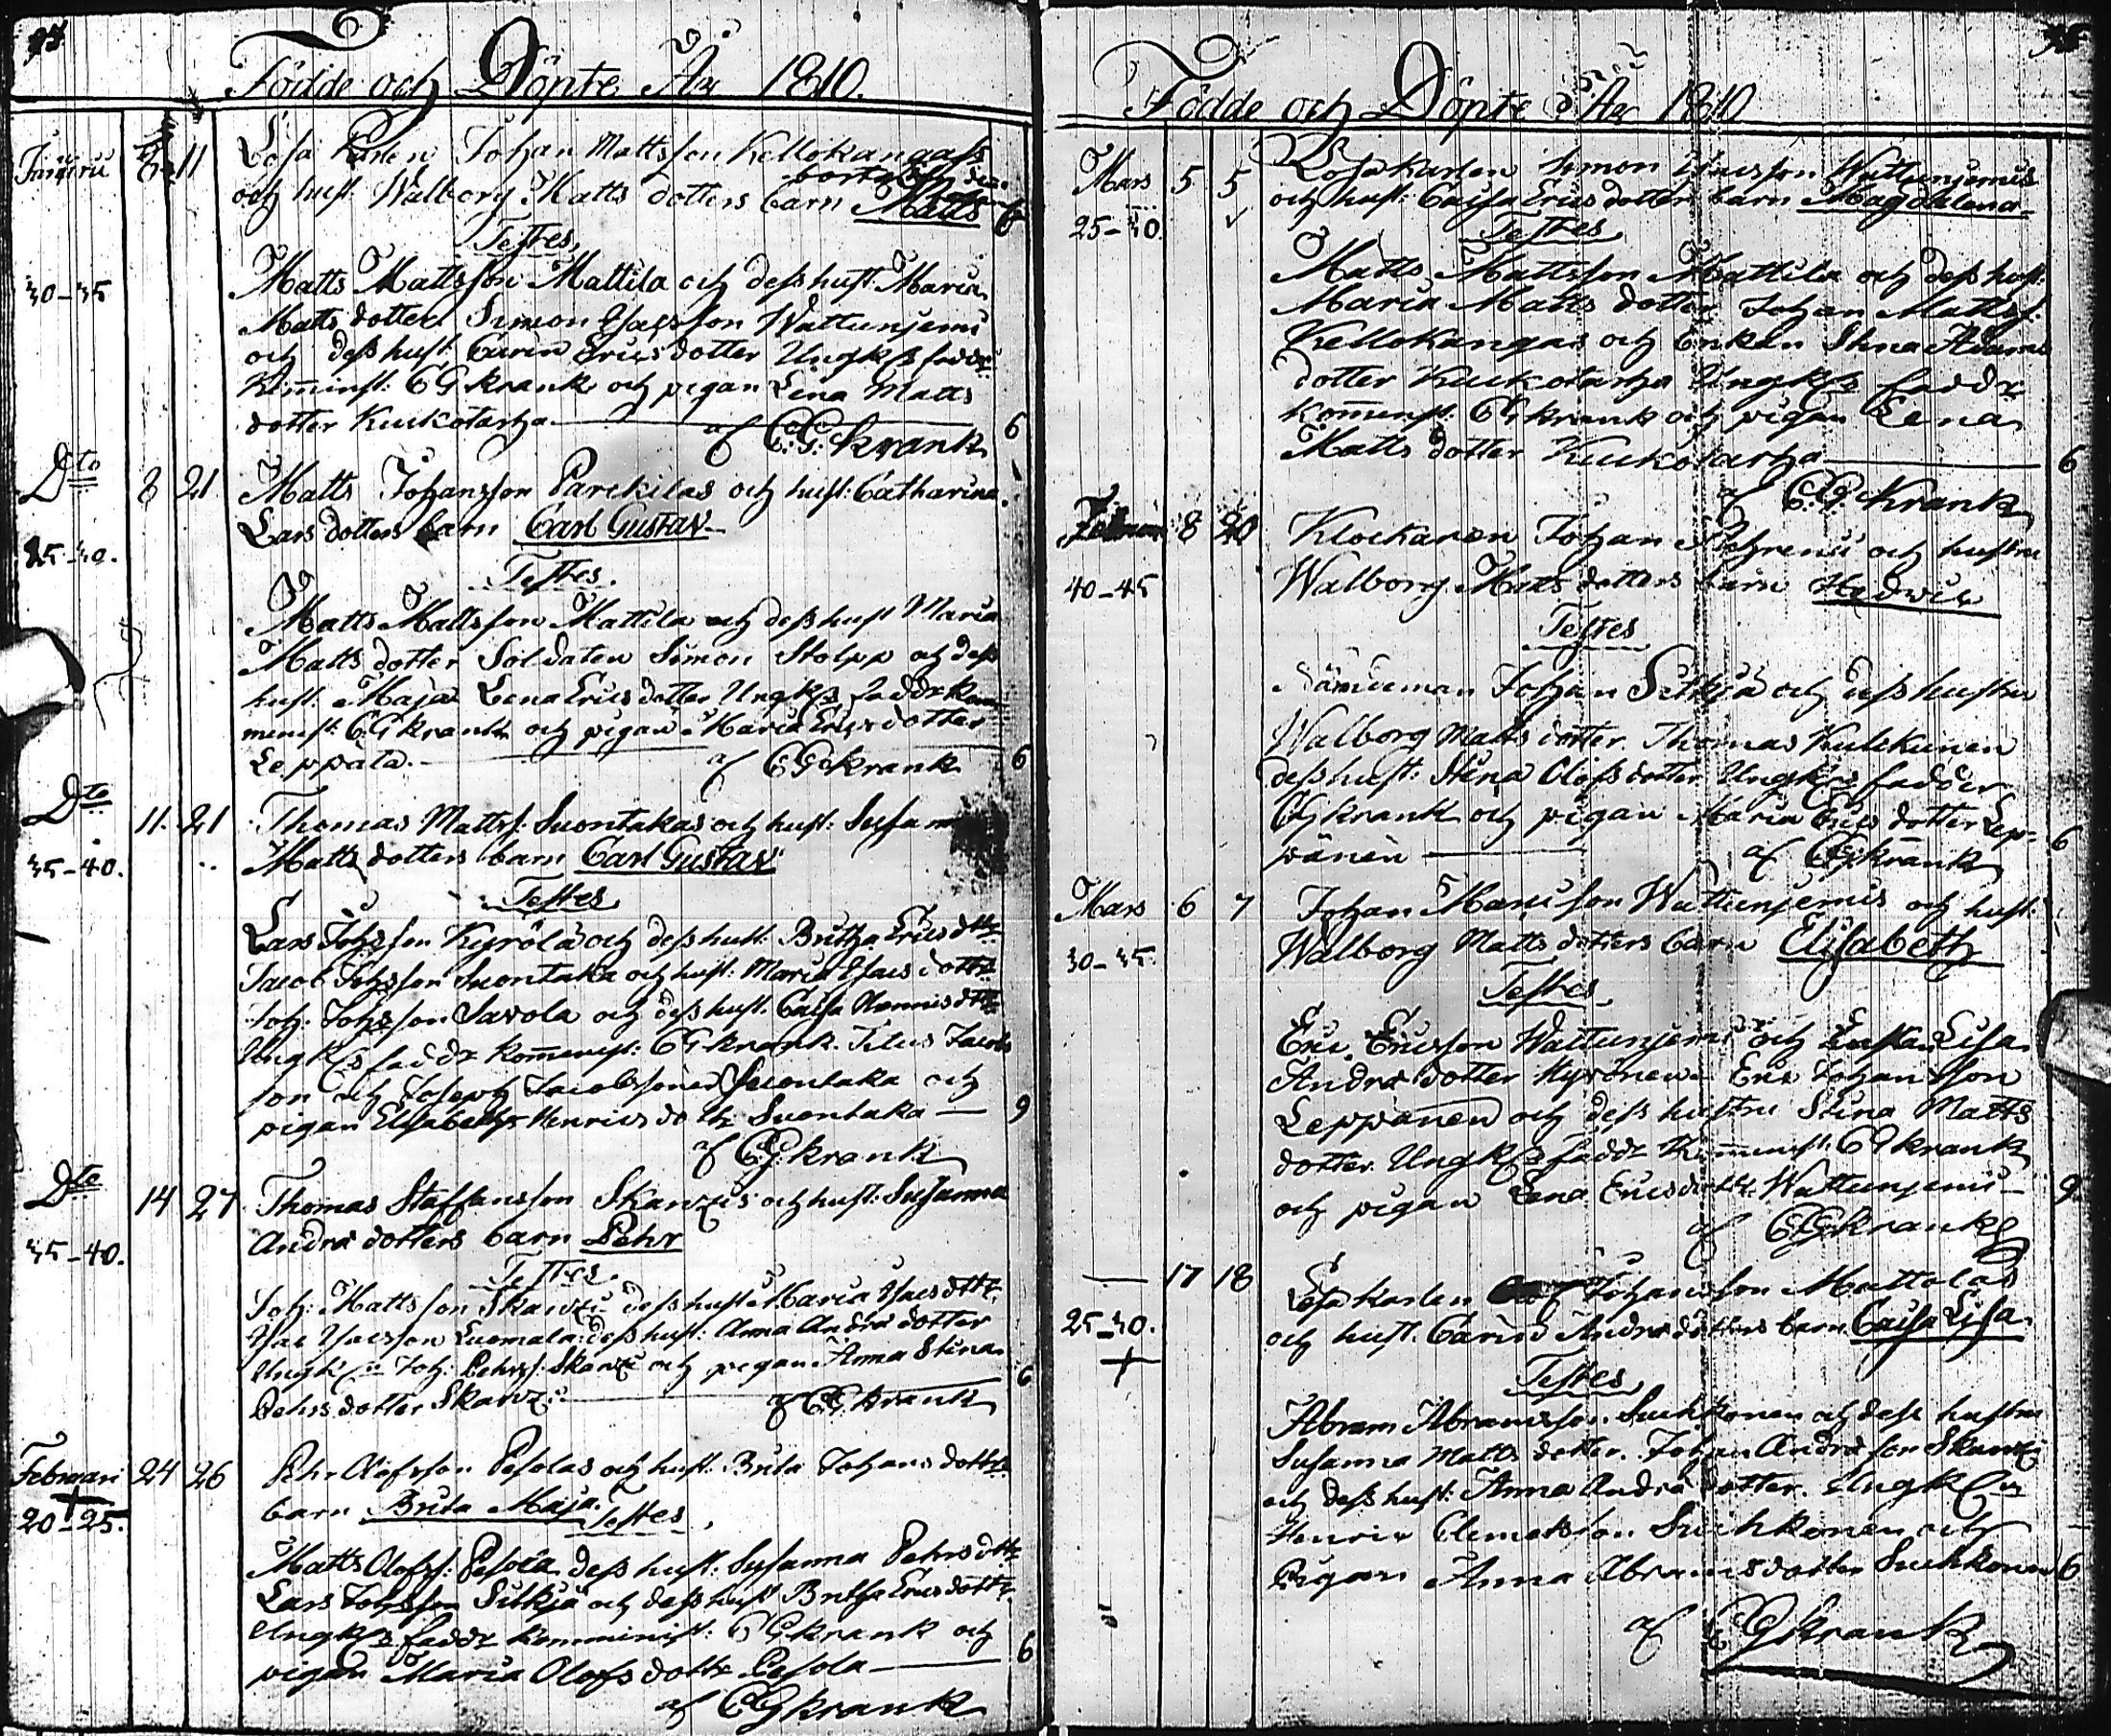 94
Födde och Döpte År 1810.
Januarii 11
Losakarlen Johan Mattsson Kellokangass
och hust: Walborg Matts dotters barn Matts 6
Testes.
30-35
Matts Mattsson Mattila och dess hust: Maria
Matts dotter Simon Isacsson Wattunjemi
och dess hust: Carin Ericsdotter Ungk:s faddr
Komminist: CGkrank och pigan Lena Matts
dotter Kuckotarha 6
af C.G.krank
Dto 8 21 Matts Johansson Parckilas och hust: Catharina
Lars dotters barn Carl Gustav
25-30.
Testes.
Matts Mattsson Mattila och dess hust Maria
Matts dotter Soldaten Simon Stolpp och dess
hust: Maja Lena Ericsdotter Ungk:s faddr kom
minist: CGkrank och pigan Maria Ericsdotter
Leppälä. 6
af CGkrank
Dto 11. 21 Thomas Matts: Suontakas och hust: Susanna
Matts dotters barn Carl Gustav
35-40.
Testes
Lars Johsson Kyrölä och dess hust: Britha Ericsdttr
Jacob Johsson Suontaka och hust: Maria Isacs dottr
Joh: Johsson Savola och dess hust. Caisa dttr
Ungk:s faddr kommenist: CGkrank. Titus Jacobs
son och Joseph Jacobssoner Suontaka och
pigan Elisabeth Henrics dottr Suontaka 9
af CGkrank
Dto 14 27 Thomas Staffansson Skantzis och hust: Susanna
Andrs dotters barn Pehr
35-40.
Testes.
Joh: Mattsson Skantzi dess hust: Maria Isacs dttr
Isac Isacsson Luomala: dess hust: Anna Andrs dotter
Ungk: Joh: Pehrs: Skantzi och pigan Anna Stina
Pehrs dotter Skantzi 6
af CGkrank
Februari 24 26 Pehr Olofsson Pesolas och hust: Brita Johans dottr
barn Brita Maja.
Testes
20-25.
Matts Olofs: Pesola dess hust: Susanna Pehrs dttr
Lars Johsson Sitkjä och dess hust Britha Erics dottr
Ungk:s faddr komminist: CGkrank och
pigan Maria Olofs dottr Pesola 6
af CGkrank
95
Födde och Döpte År 1810
Mars 5 5 Losakarlen Simon Isacsson Wattunjemis
och hust: Caisa Erics dotters barn Magdalena
25-30.
Testes
Matts Mattsson Mattila och dess hust:
Maria Matts dotter Johan Matts:
Kellokangas och Enkan Stina Adams
dotter Kuckotarha Ungk:s faddr
komminst. CGkrank och pigan Lena
Matts dotter Kuckotarha 6
af C.G. Krank
Februari 8 20 Klockaren Johan och hustru
40-45
Walborg Matts dotters barn Hedwig
Testes
Nämdeman Johan Sitkjä och dess hustru
Walborg Matts dotter. Thomas Kulckunen
dess hust: Stina Olofs dotter Ungk:s fadder
CGkrank och pigan Maria Erics dotter Lep-
pänen 6
af CGkrank
Mars 6 7 Johan Wattunjemis och hust:
Walborg Matts dotters barn Elisabeth
30-35.
Testes
Eric Ericsson Wattunjemi och Enkan Lisa
Andrs dotter Kyrönen Eric Johansson
Leppänen och dess hustru Stina Matts
dotter. Ungk:s faddr Komminist: CGkrank
och pigan Lena Ericsdottr Wattunjemi 9
af CGkrank
— 17 18
Losakarlen Johansson Mattolas
och hust. Carin Andrs dotters barn Caisa Lisa
25-30.
Testes
Abram Abramsson Suchkonen och dess hustru
Susanna Matts dotter. Johan Andrsson Skantzi
och dess hust: Anna Andrs dotter. Ungk:
Henric Clemetsson Suchkonen och
Pigan Anna Abrams dotter Suchkonen 6
af CGkrank